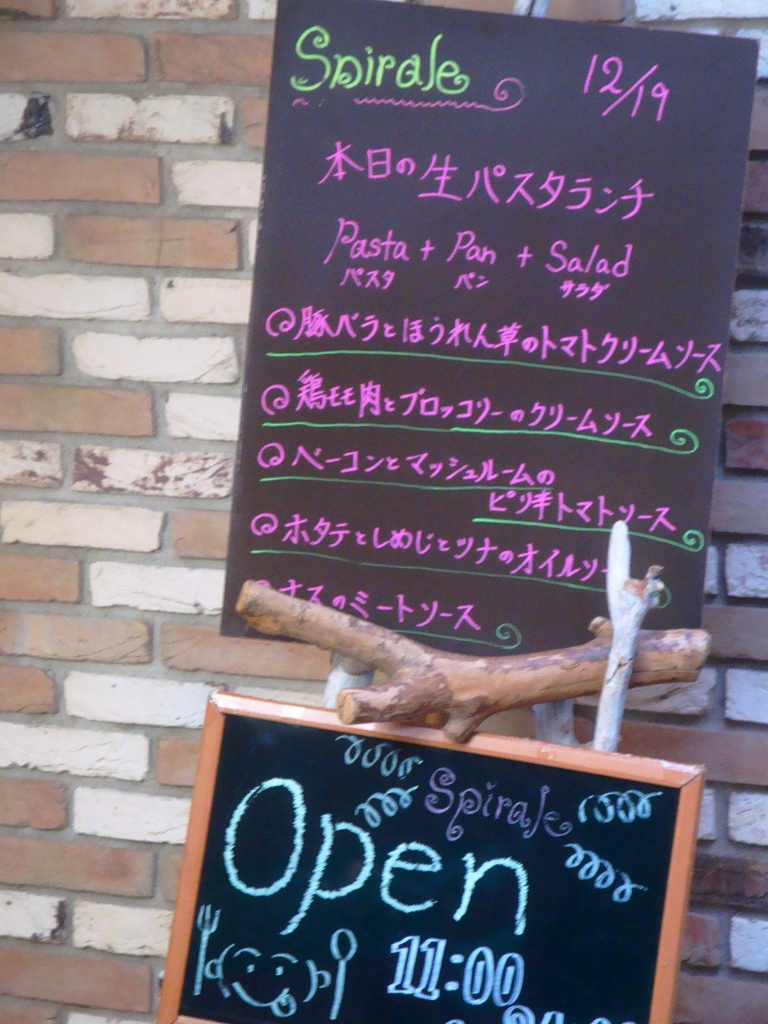 Spirale 12/19
本日の生パスタランチ
Pasta + Pan + Salad
パスタ パン サラダ
豚バラとほうれん草のトマトクリームソース
鶏モモ肉とブロッコリーのクリームソース
ベーコンとマッシュルームの
ピリ辛トマトソース
ホタテとしめじとツナのオイルソー
ナスのミートソース
Spirale
Open
11:00